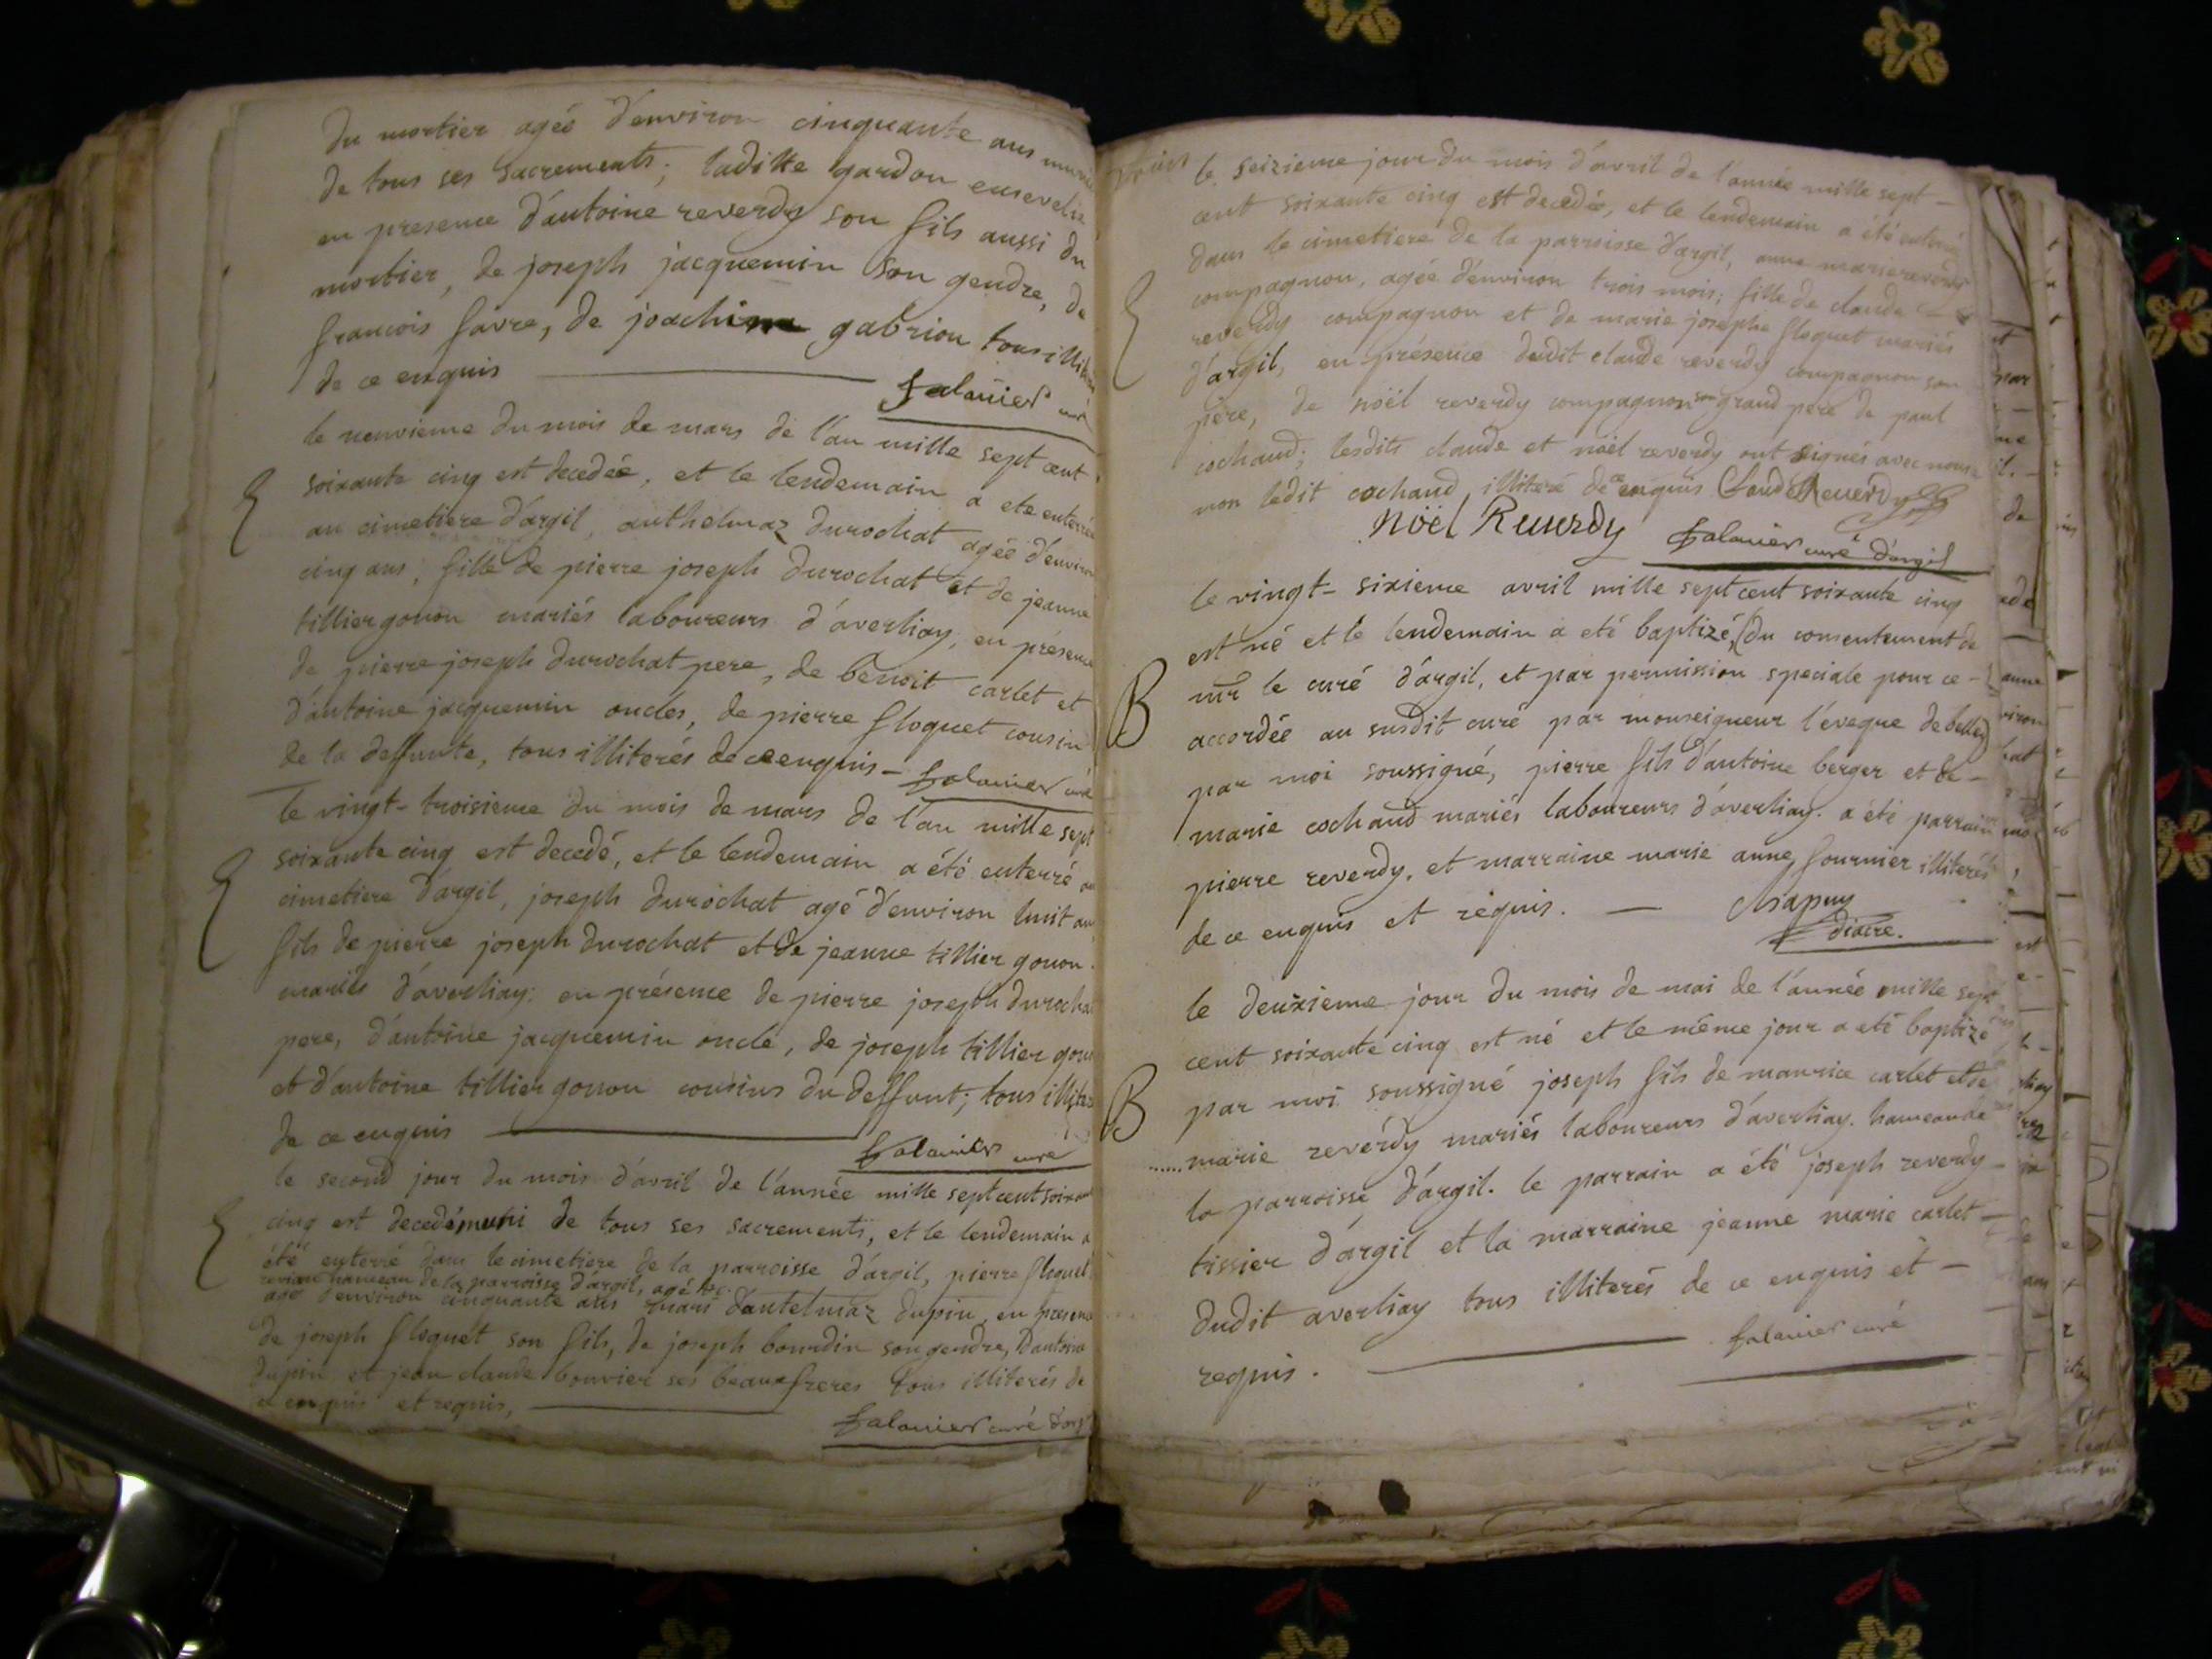 du mortier ageé d'environ cinquante ans munie
de tous ses sacrements; laditte gardon ensevelie
en presence d'antoine reverdy son fils aussi du
mortier, de joseph jacquemin son gendre, de
francois favre, de joachim gabrion tous
de ce enquis falavier curé
le neuvieme du mois de mars de l'an mille sept cent
soixante cinq est decedeé, et le lendemain a ete enterrée
au cimetiere d'argil, anthelmaz durochat ageé d'environ
cinq ans, fille de pierre joseph durochat et de jeanne
tillier gonon mariés laboureurs d'averliay, en présence
de pierre joseph durochat pere, de benoit carlet et
d'antoine jacquemin oncles, de pierre floquet cousin
de la deffunte, tous illiterés de ce enquis - falavier curé
le vingt-troisieme du mois de mars de l'an mille sept
soixante cinq est decedé, et le lendemain a été enterré au
cimetiere d'argil, joseph durochat agé d'environ huit ans
fils de pierre joseph durochat et de jeanne tillier gonon
mariés d'averliay: en présence de pierre joseph durochat
pere, d'antoine jacquemin oncle, de joseph tillier gonon
et d'antoine tillier gonon cousins du deffunt; tous
de ce enquis falavier curé
le second jour du mois d'avril de l'année mille sept cent soixante
cinq est decedé muni de tous ses sacrements, et le lendemain a
été enterré dans le cimetiere de la parroisse d'argil, pierre floquet
hameau de la parroisse d'argil, agé
agé d'environ cinquante ans mari d'antelmaz dupin, en presence
de joseph floquet son fils, de joseph bourdin son gendre, d'antoine
dupin et jean claude bouvier ses beaux freres tous illiterés de
ce enquis et requis, falavier curé d'argil
le seizieme jour du mois d'avril de l'année mille sept-
cent soixante cinq est decedeé, et le lendemain a été enterré
dans le cimetiere de la parroisse d'argil, anne marie reverdy
compagnon, agée d'environ trois mois; fille de claude
reverdy compagnon et de marie josephe floquet mariés
d'argil, en présence dudit claude reverdy compagnon son
père, de noël reverdy compagnon son grand pere de paul
cochaud; lesdits claude et noël reverdy ont signés avec nous
non ledit cochaud illiteré de ce enquis Claude Reverdy
Noël Reverdy falavier curé d'argil
le vingt-sixieme avril mille sept cent soixante cinq
est né et le lendemain a eté baptizé, (du consentement de
B mr le curé d'argil, et par permission speciale pour ce-
accordée au susdit curé par monseigneur l'éveque de belley)
par moi soussigné, pierre fils d'antoine berger et de-
marie cochaud mariés laboureurs d'averliay. a été parrain
pierre reverdy, et marraine marie anne fournier illiterés
de ce enquis et requis. — Chapuy
diacre.
le deuxieme jour du mois de mai de l'année mille sept
cent soixante cinq est né et le même jour a eté baptizé
B par moi soussigné joseph fils de maurice carlet et de
marie reverdy mariés laboureurs d'averliay. hameau de
la parroisse d'argil. le parrain a été joseph reverdy
tissier d'argil et la marraine jeanne marie carlet-
dudit averliay tous illiterés de ce enquis et-
requis. falavier curé